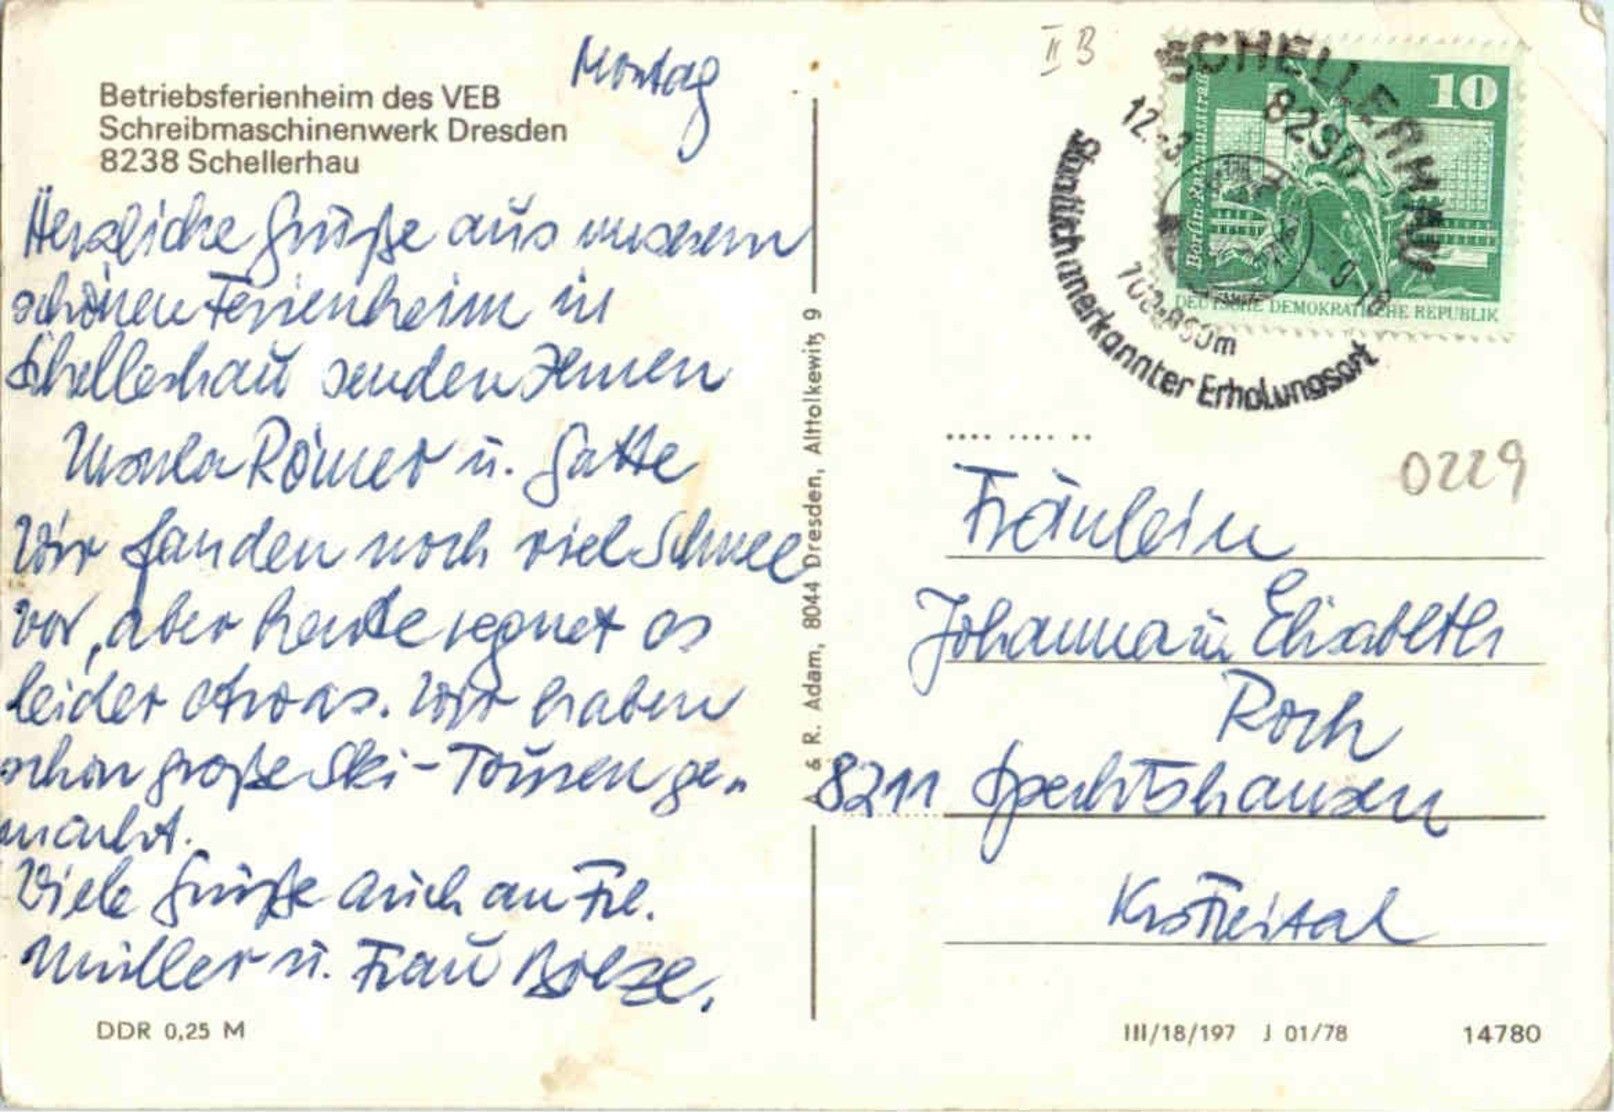 Betriebsferienheim des VEB
Schreibmaschinenwerk Dresden
8238 Schellerhau
Montag
Herzliche Grüße aus unserem
schönen Ferienheim in
Schellerhau senden Ihnen
Ursula Römer u. Gatte
Wir fanden noch viel Schnee
vor, aber heute regnet es
leider etwas. Wir haben
schon große Ski-Touren ge-
macht.
Viele Grüße auch an Frl.
Müller u. Frau Bolze.
DDR 0,25 M
& R. Adam, 8044 Dresden, Alttolkewitz 9
II B
SCHELLERHAU
12.-3
Staatlich anerkannter Erholungsort
10
Berlin-Rathausstraße
DEUTSCHE DEMOKRATISCHE REPUBLIK
0229
Fräulein
Johanna u. Elisabeth
Roch
8211 Spechtshausen
Krs Freital
III/18/197 J 01/78
14780